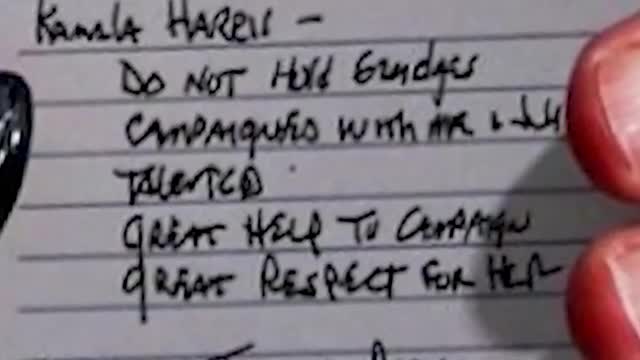 Kamala HARRIS —
DO NOT Hold Grudges
CAMPAIGNED with me & Jill
TALENTED
GREAT HELP TO CAMPAIGN
GREAT RESPECT FOR HER